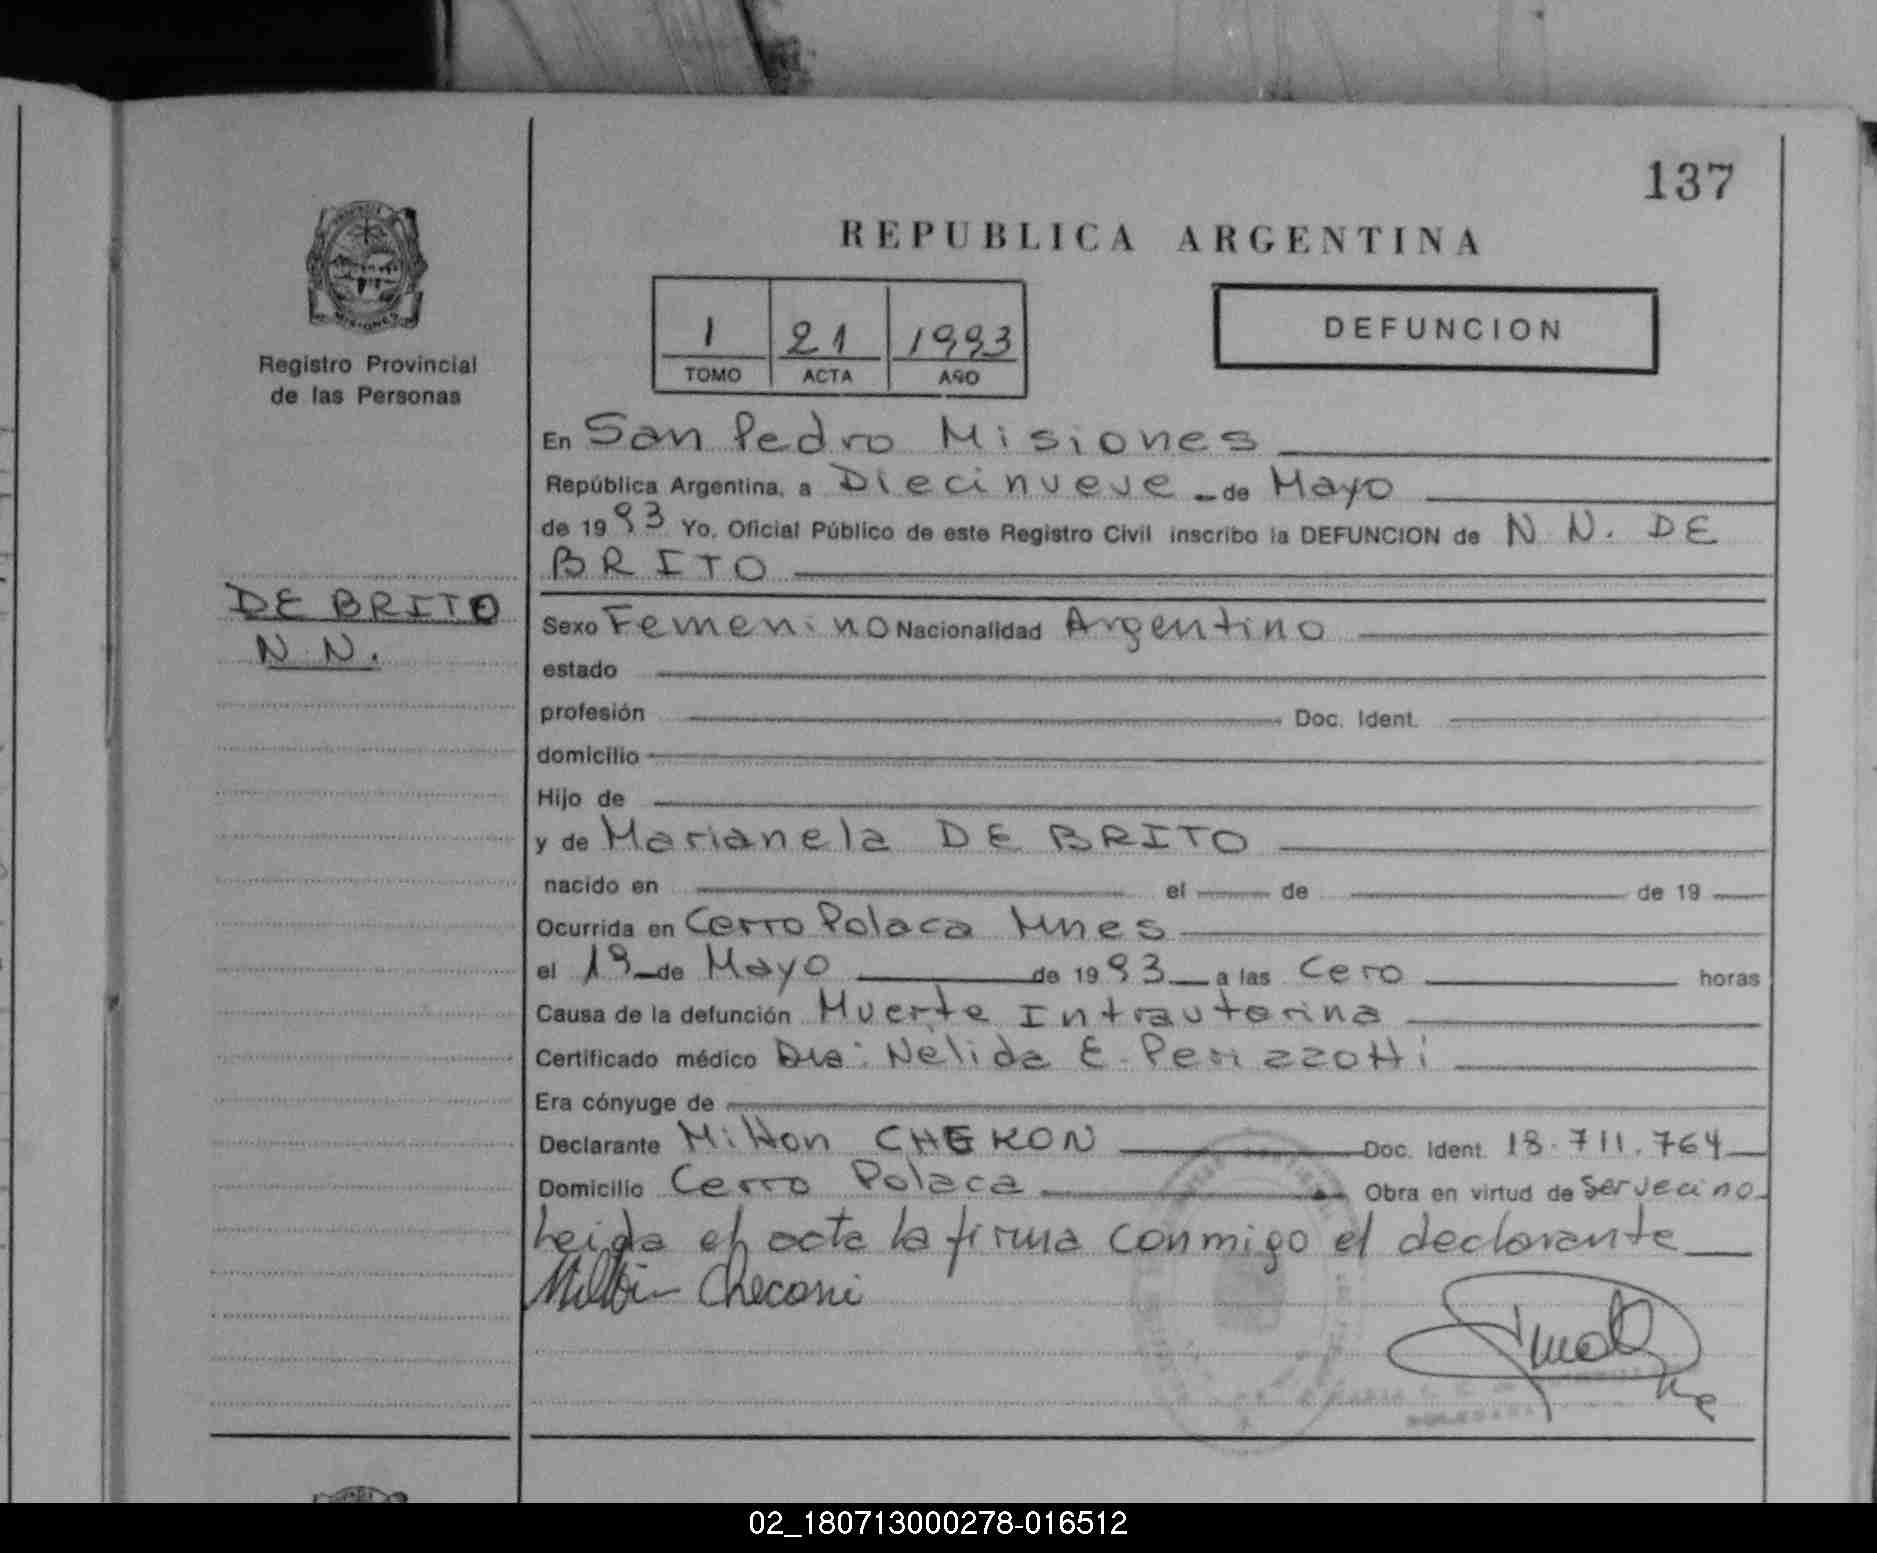 137
REPUBLICA ARGENTINA
1 21 1993
TOMO ACTA AÑO
DEFUNCION
Registro Provincial
de las Personas
DE BRITO
N.N.
En San Pedro Misiones
República Argentina, a Diecinueve de Mayo
de 1993 Yo, Oficial Público de este Registro Civil inscribo la DEFUNCION de N.N. DE
BRITO
Sexo Femenino Nacionalidad Argentino
estado
profesión Doc. Ident.
domicilio
Hijo de
y de Marianela DE BRITO
nacido en el de de 19
Ocurrida en Cerro Polaca Mnes
el 19 de Mayo de 1993 a las Cero horas
Causa de la defunción Muerte Intrauterina
Certificado médico Dra: Nelida E. Perizzotti
Era cónyuge de
Declarante Milton CHEKON Doc. Ident. 18.711.764
Domicilio Cerro Polaca Obra en virtud de Ser vecino
Leida el acta la firma conmigo el declarante
Milton Checoni
02_180713000278-016512